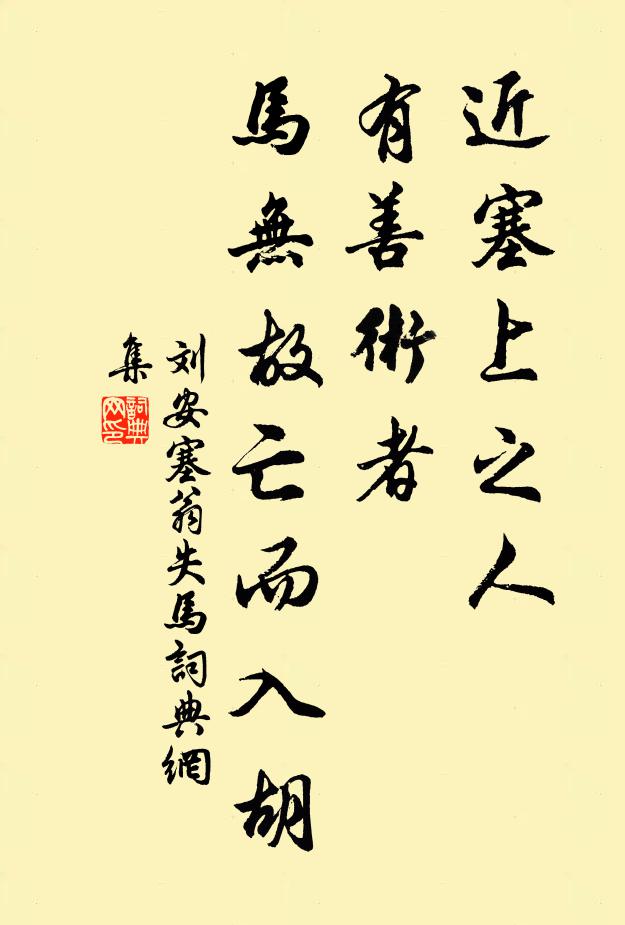 近塞上之人
有善術者
馬無故亡而入胡
刘安塞翁失馬詞典網
集
詞典
网印